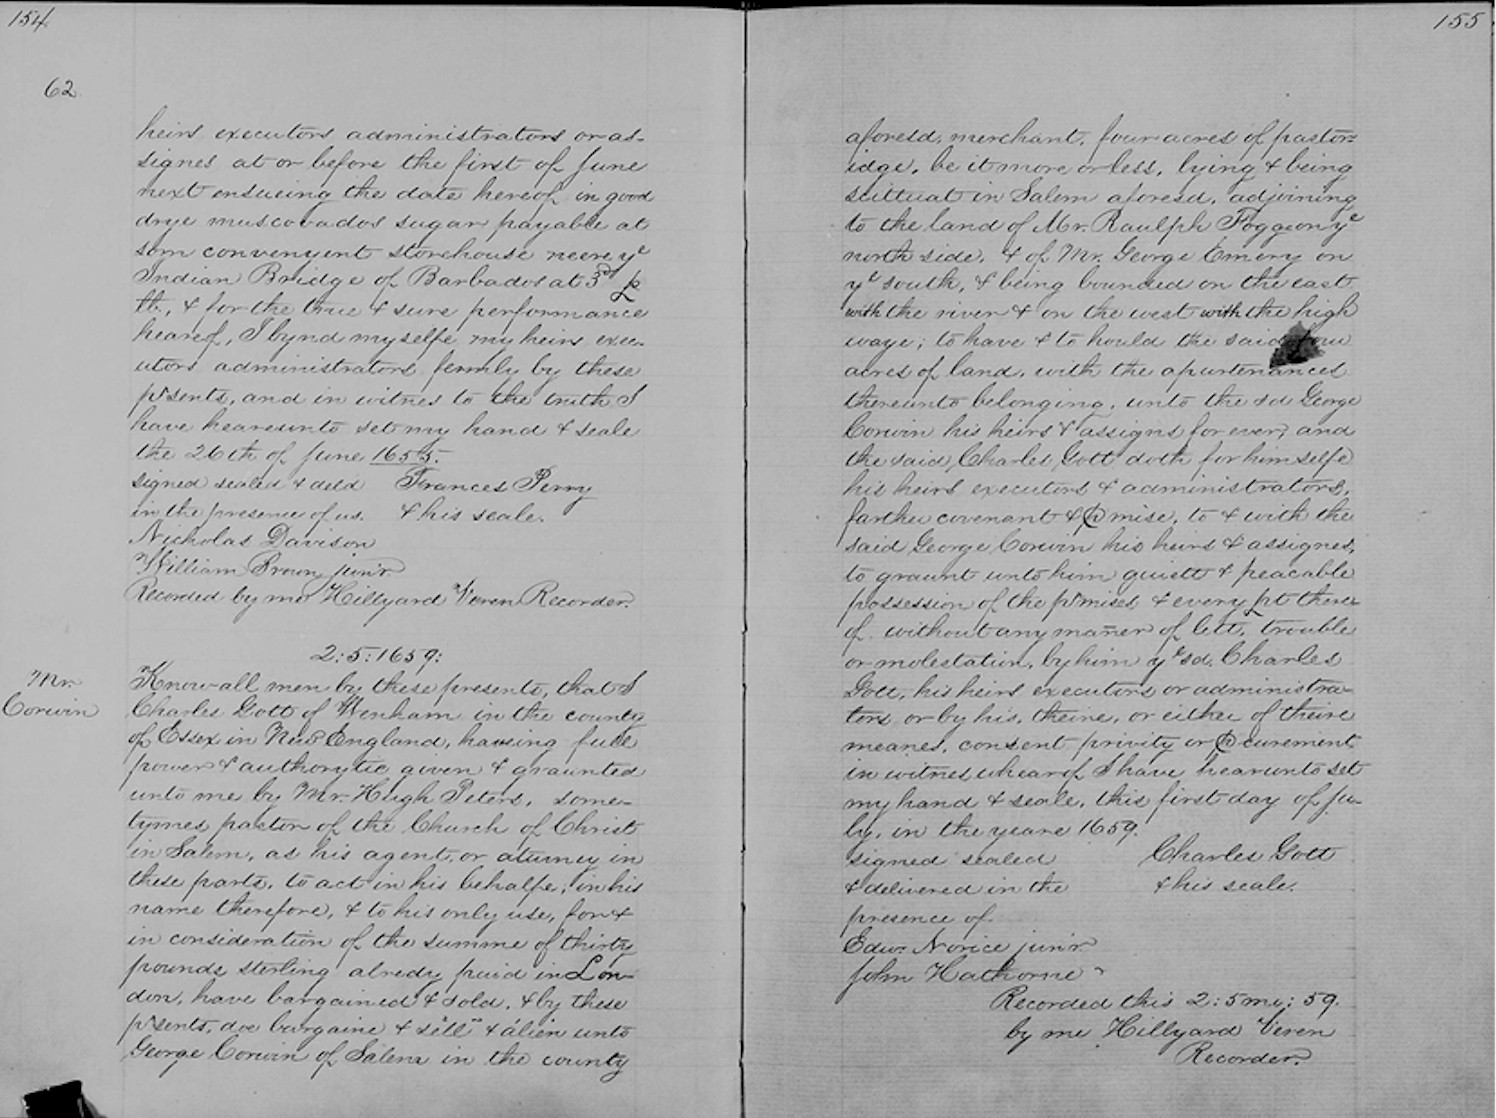 154
62
heirs executors administrators or as-
signes at or before the first of June
next ensueing the date hereof in good
drye muscovados sugar payable at
som convenyent storehouse neere yᵉ
Indian Bridge of Barbados at 3ᵈ ⅌
lb, & for the true & sure performance
hearof, I bynd my selfe my heirs exec-
utors administrators firmly by these
pʳsents, and in witnes to the truth I
have heareunto set my hand & seale
the 26th of June 1655.
signed sealed & deld Frances Perry
in the presence of us. & his seale.
Nicholas Davison
William Brown junʳ
Recorded by me Hillyard Veren Recorder.
2:5:1659:
Mr.
Corwin
Know all men by these presents, that I
Charles Gott of Wenham in the county
of Essex in New England, having full
power & authorytie given & graunted
unto me by Mr. Hugh Peters, some-
tymes pastor of the Church of Christ
in Salem, as his agent or aturney in
these parts, to act in his behalfe, in his
name therefore, & to his only use, for &
in consideration of the summe of thirty
pounds sterling alredy paid in Lon-
don, have bargained & sold, & by these
pʳsents, doe bargaine & sell & alien unto
George Corwin of Salem in the county
155
aforesd, merchant, four acres of pastor=
idge, be it more or less, lying & being
scittuat in Salem aforesd, adjoining
to the land of Mr. Raulph Fogge on yᵉ
north side, & of Mr. George Emery on
yᵉ south, & being bounded on the east
with the river & on the west with the high
waye; to have & to hould the said four
acres of land, with the apurtenances
thereunto belonging, unto the sd George
Corwin his heirs & assigns for ever, and
the said Charles Gott doth for him selfe
his heirs executors & administrators,
farther covenant & ⅌mise, to & with the
said George Corwin his heirs & assignes,
to graunt unto him quiett & peacable
possession of the pʳmises & every pt there-
of without any man̄er of lett, trouble
or molestation, by him yᵉ sd. Charles
Gott, his heirs executors or administra-
tors or by his, theire, or either of theire
meanes, consent privity or ⅌curement
in witnes whearof I have hearunto set
my hand & seale, this first day of Ju-
ly, in the yeare 1659.
signed sealed Charles Gott
& delivered in the & his seale.
presence of
Edw. Norice junʳ
John Hathorne
Recorded this 2:5 mo: 59.
by me Hillyard Veren
Recorder.